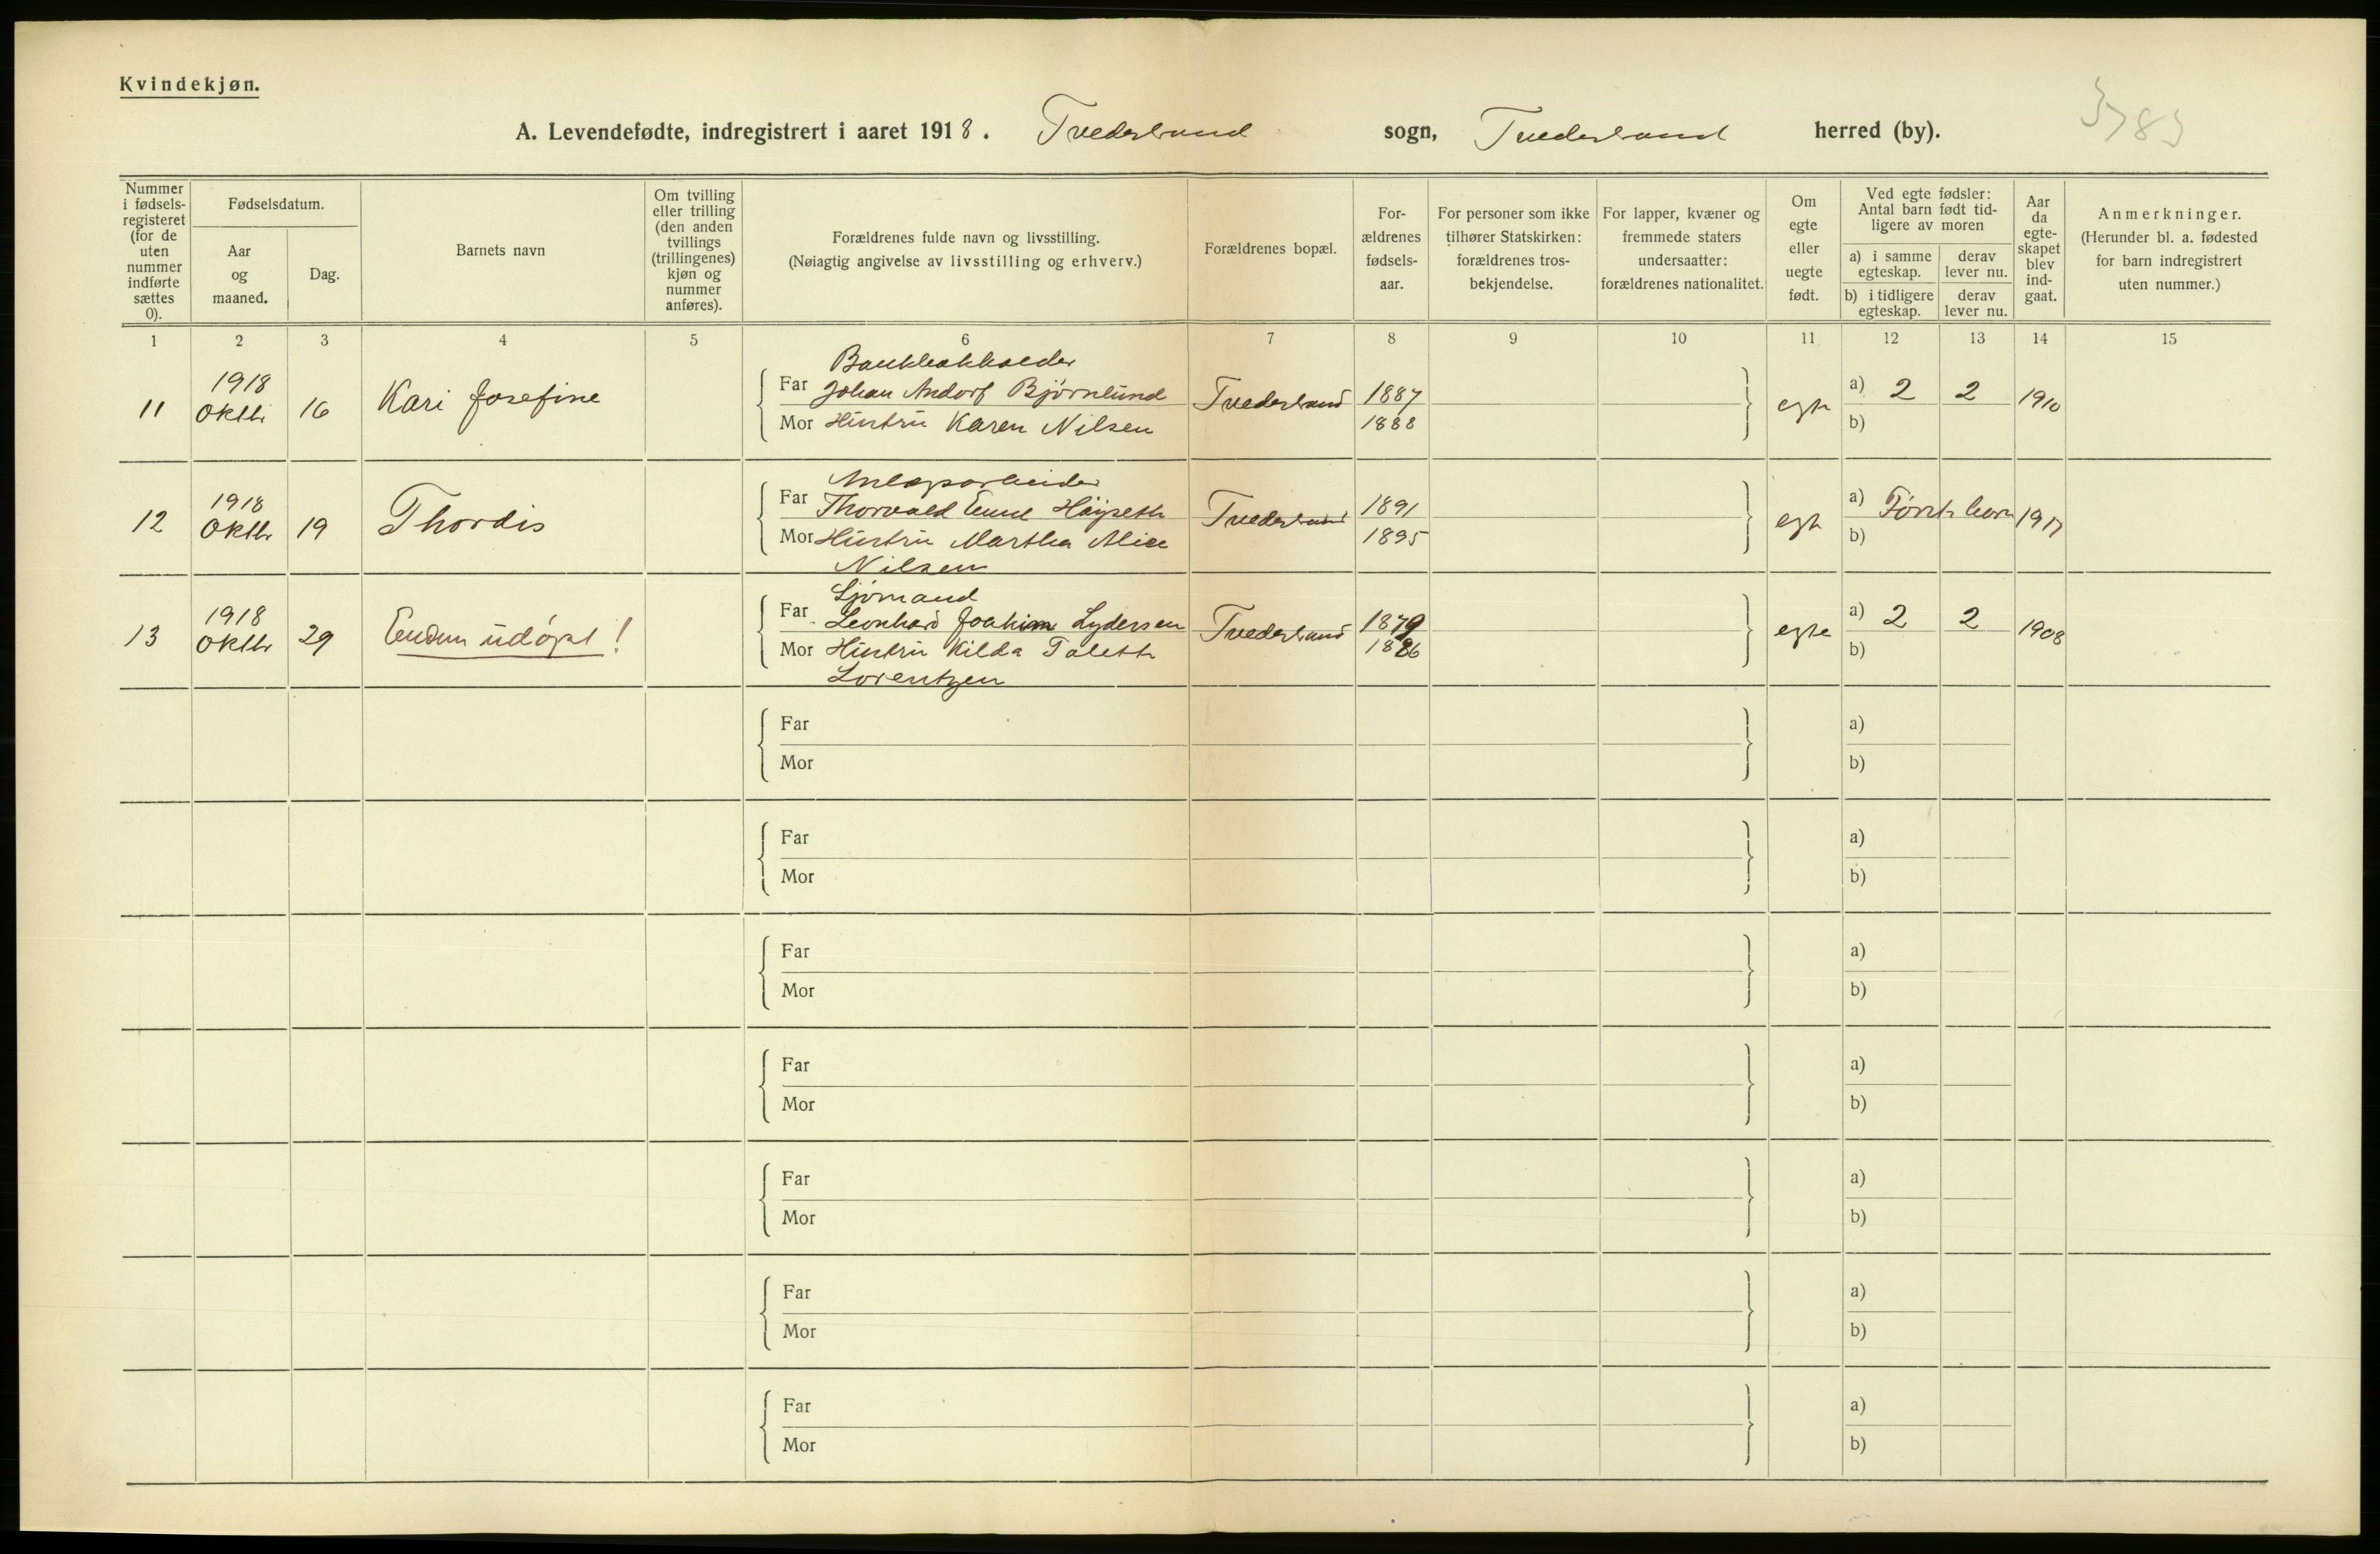 Kvindekjøn.
A. Levendefødte, indregistrert i aaret 1918. Tvedestrand sogn, Tvedestrand herred (by).
3783
Nummer i fødselsregisteret (for de uten nummer indførte sættes 0).
Fødselsdatum.
Aar og maaned.
Dag.
Barnets navn
Om tvilling eller trilling (den anden tvillings (trillingenes) kjøn og nummer anføres).
Forældrenes fulde navn og livsstilling.
(Nøiagtig angivelse av livsstilling og erhverv.)
Forældrenes bopæl.
For-ældrenes fødsels-aar.
For personer som ikke tilhører Statskirken: forældrenes tros-bekjendelse.
For lapper, kvæner og fremmede staters undersaatter: forældrenes nationalitet.
Om egte eller uegte født.
Ved egte fødsler: Antal barn født tid-ligere av moren
a) i samme egteskap.
derav lever nu.
b) i tidligere egteskap.
derav lever nu.
Aar da egte-skapet blev ind-gaat.
Anmerkninger.
(Herunder bl. a. fødested for barn indregistrert uten nummer.)
1 2 3 4 5 6 7 8 9 10 11 12 13 14 15
11 1918 Oktbr 16 Kari Josefine
Far Johan Andorf Bjørnlund Tvedestrand 1887 egte a) 2 2 1910
Mor Hustru Karen Nilsen 1888 b)
12 1918 Oktbr 19 Thordis
Anlægsarbeider
Far Thorvald Emil Høyseth Tvedestrand 1891 egte a) Første barn 1917
Mor Hustru Martha Alice 1895 b)
Nilsen
13 1918 Oktbr 29 Endnu udøpt!
Sjømand
Far Leonhard Joakim Lydersen Tvedestrand 1879 egte a) 2 2 1908
Mor Hustru Hilda Talette 1886 b)
Lorentzen
Far a)
Mor b)
Far a)
Mor b)
Far a)
Mor b)
Far a)
Mor b)
Far a)
Mor b)
Far a)
Mor b)
Far a)
Mor b)